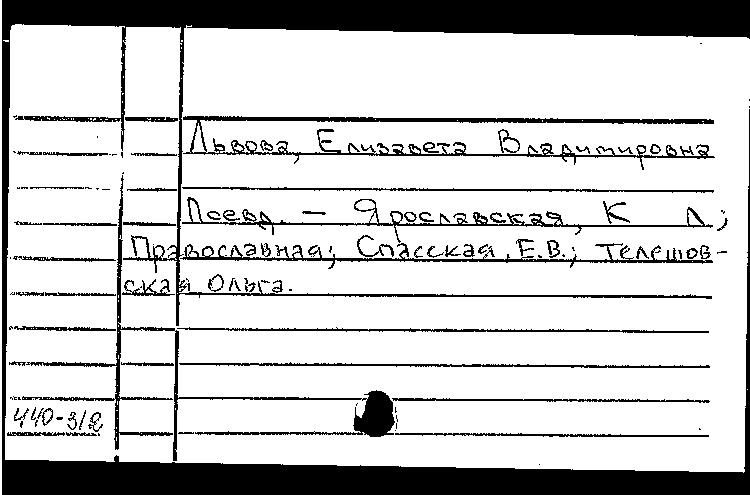 Львова, Елизавета Владимировна
Псевд. – Ярославская, К Л;
Православная; Спасская, Е.В.; Телешов-
ская, Ольга.
440-3/2